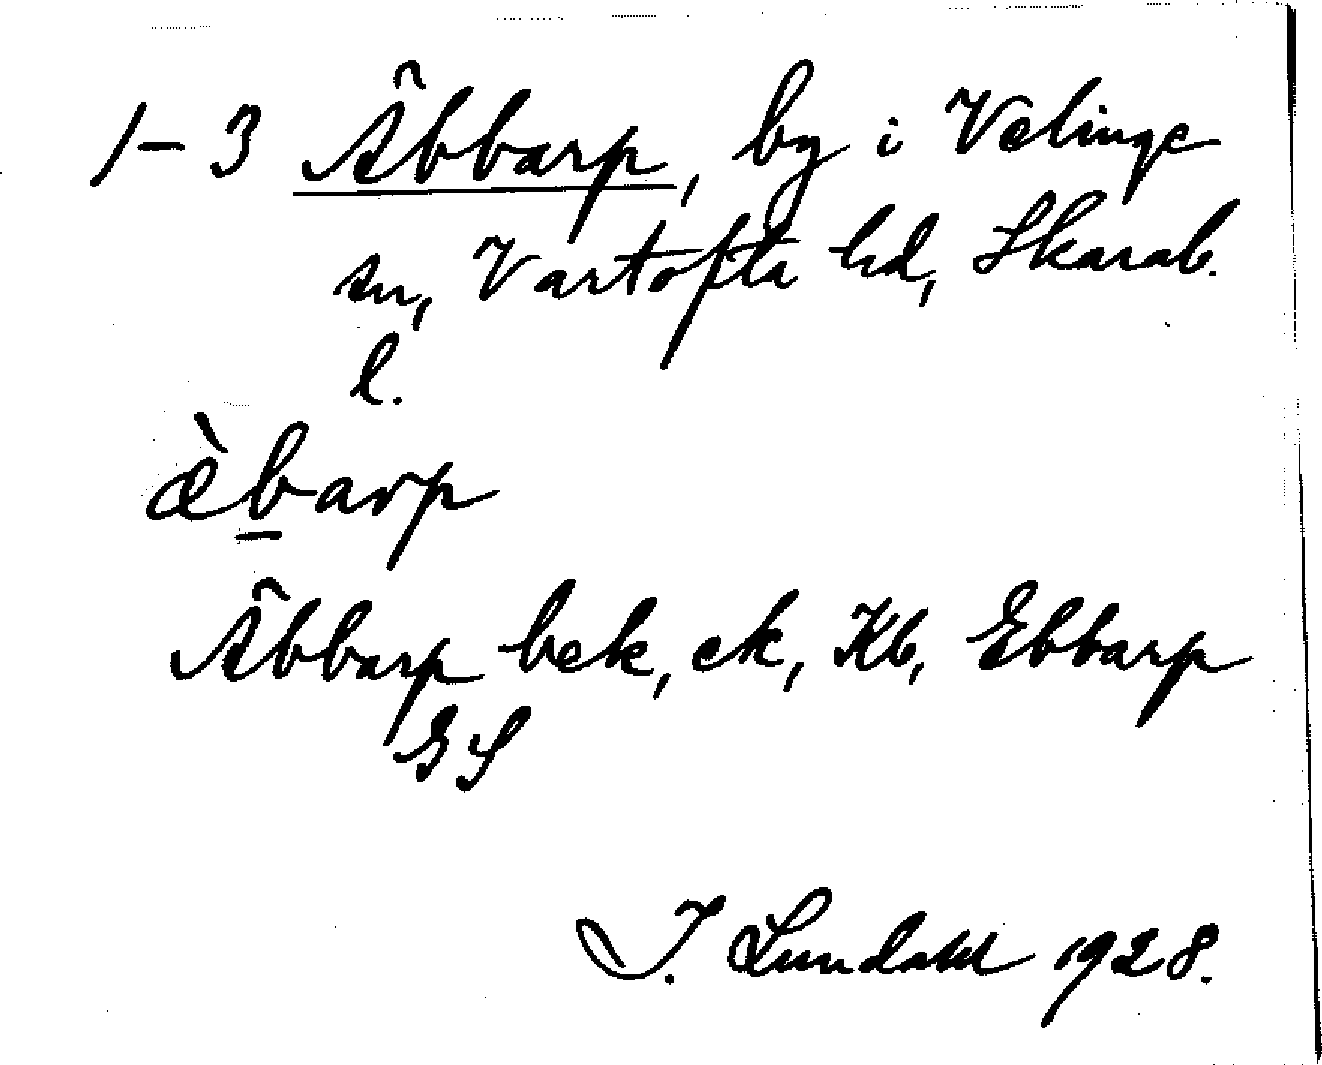 1-3 Äbbarp, by i Velinge
sn, Vartofta hd, Skarab.
l.
æ̀barp
Äbbarp bek, ek, Kb, Ebbarp
GS
I. Lundahl 1928.